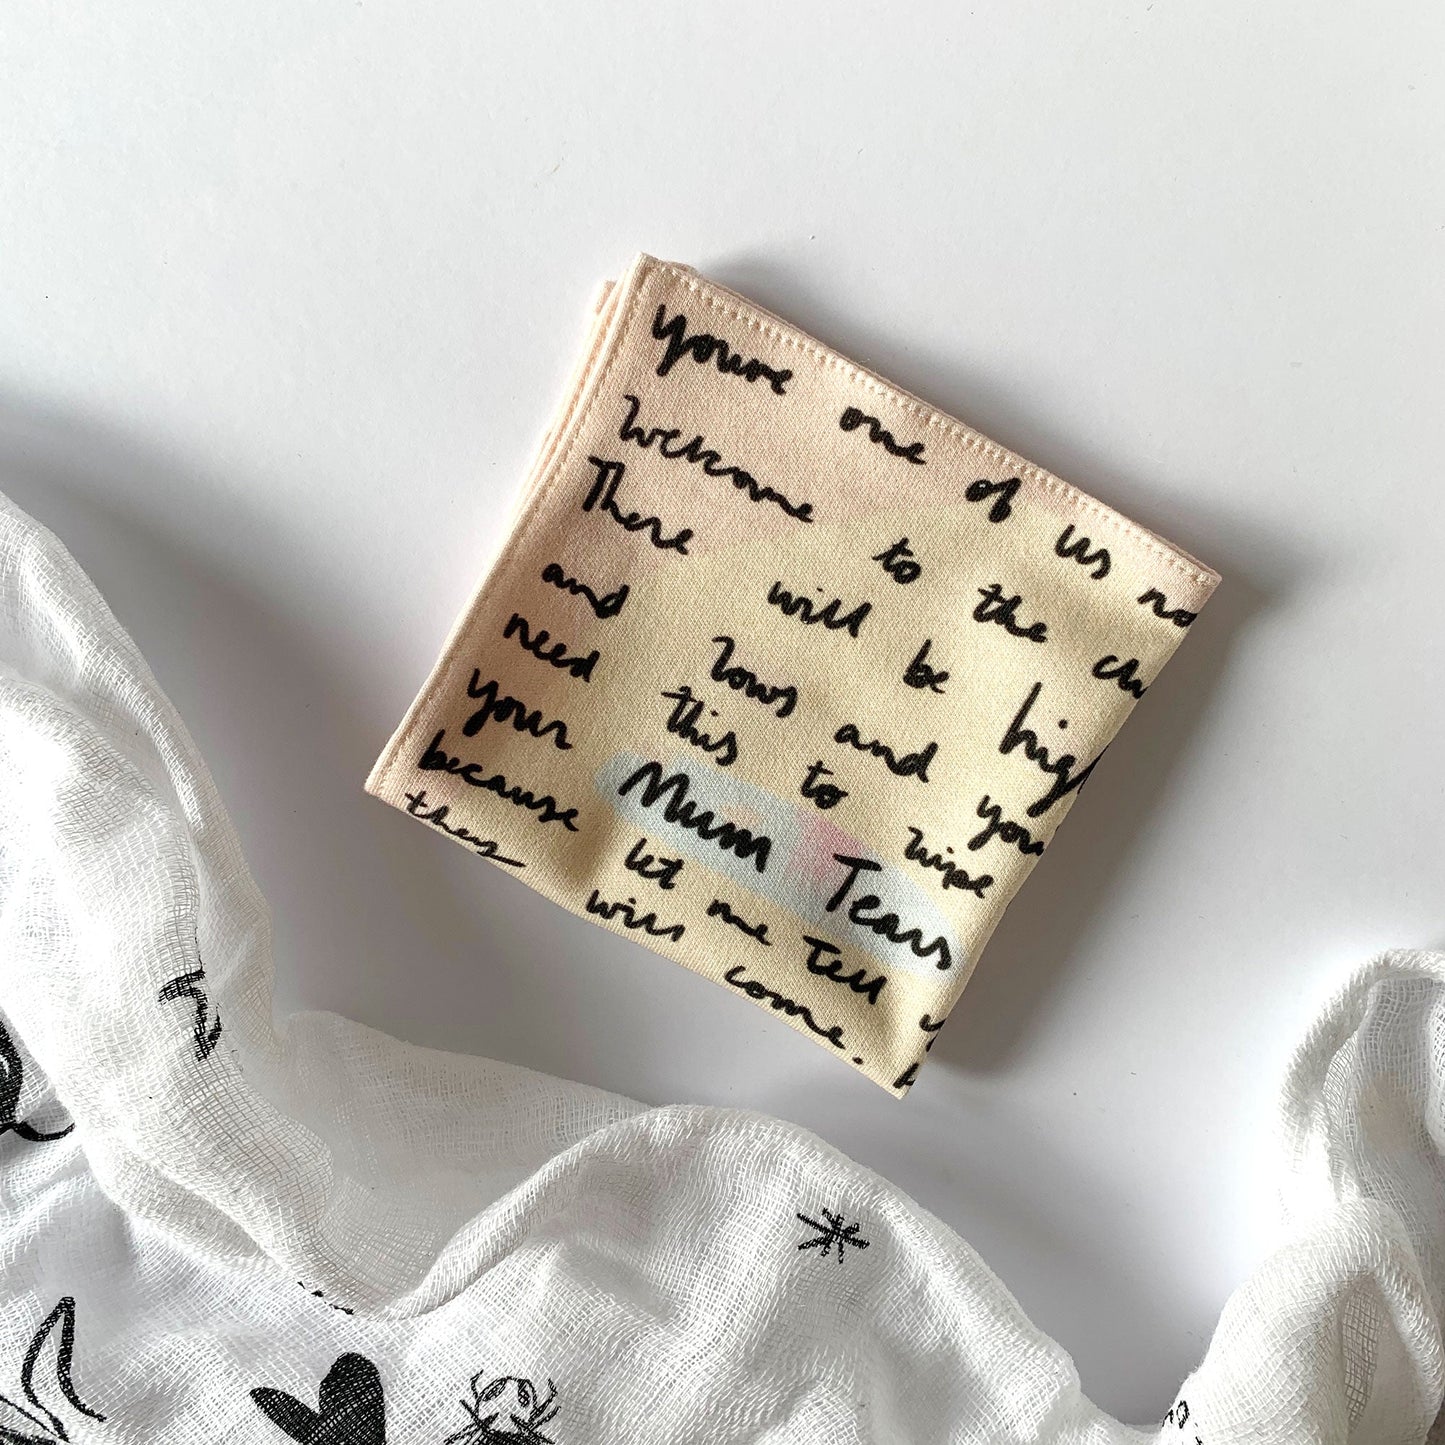 You're one of us no
Welcome to the ch
There will be hig
and lows and you
need this to wipe
your Mum Tears
because let me Tell y
they will come.